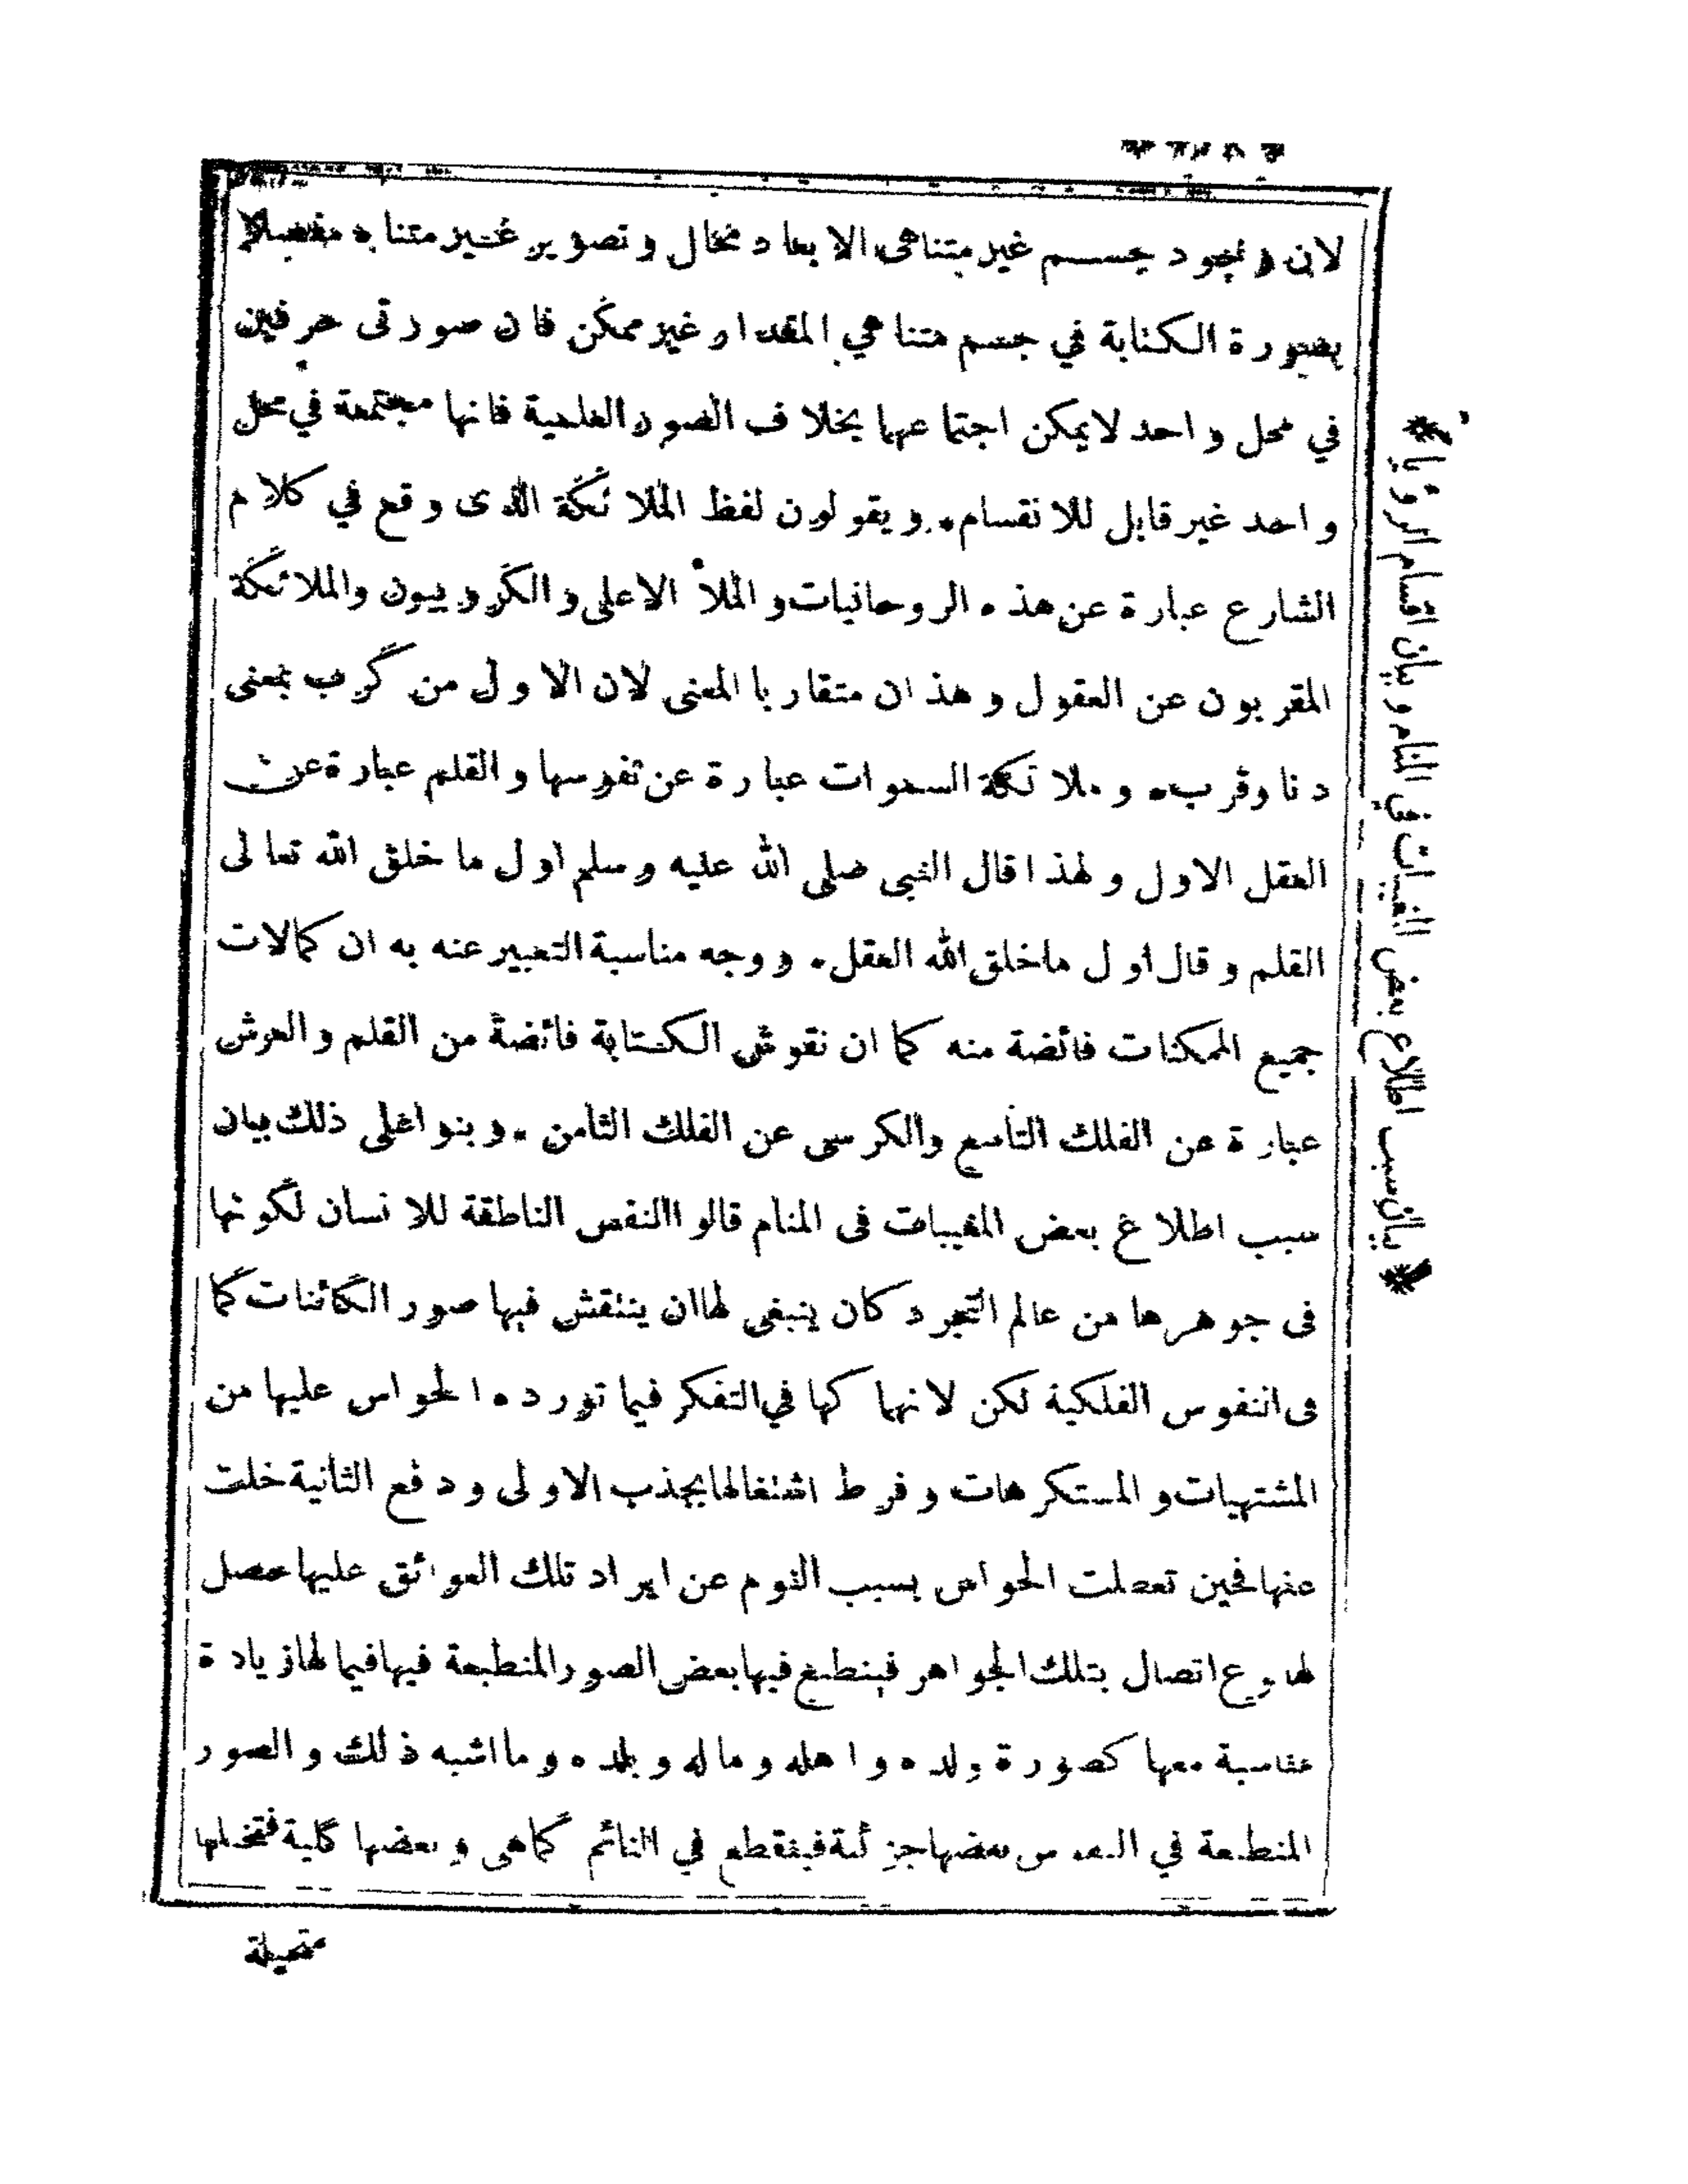 لان وجود جسم غير متناهى الابعاد محال وتصوير غير متناه مفصلا
بصورة الكتابة في جسم متناهي المقدار غير ممكن فان صورتى حرفين
في محل واحد لايمكن اجتماعهما بخلاف الصور العلمية فانها مجتمعة في محل
واحد غير قابل للانقسام. ويقولون لفظ الملائكة الذى وقع في كلام
الشارع عبارة عن هذه الروحانيات والملأ الاعلى والكروبيون والملائكة
المقربون عن العقول وهذان متقاربا المعنى لان الاول من كرب بمعنى
دنا وقرب. وملائكة السموات عبارة عن نفوسها والقلم عبارة عن
العقل الاول ولهذا قال النبى صلى الله عليه وسلم اول ما خلق الله تعالى
القلم وقال اول ماخلق الله العقل. ووجه مناسبة التعبير عنه به ان كمالات
جميع الممكنات فائضة منه كما ان نقوش الكتابة فائضة من القلم والعرش
عبارة عن الفلك التاسع والكرسى عن الفلك الثامن. وبنوا على ذلك بيان
سبب اطلاع بعض المغيبات فى المنام قالوا النفس الناطقة للانسان لكونها
فى جوهرها من عالم التجرد كان ينبغى لها ان ينتقش فيها صور الكائنات كما
فى النفوس الفلكية لكن لانهماكها في التفكر فيما تورده الحواس عليها من
المشتهيات والمستكرهات وفرط اشتغالها بجذب الاولى ودفع الثانية خلت
عنها فحين تعطلت الحواس بسبب النوم عن ايراد تلك العوائق عليها حصل
لها نوع اتصال بتلك الجواهر فينطبع فيها بعض الصور المنطبعة فيها فيما لها زيادة
مناسبة معها كصورة ولده واهله وماله وبلده وما اشبه ذلك والصور
المنطبعة في النفس بعضها جزئية فينقطع في النائم كماهى وبعضها كلية
متخيلة
* بيان سبب اطلاع بعض المغيبات في المنام وبيان اقسام الرؤيا *